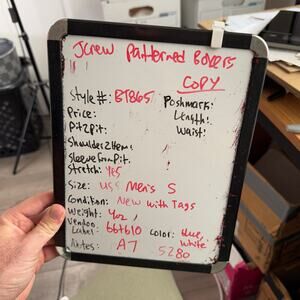 Jcrew Patterned Boxers
COPY
Style #: BT865
Poshmark:
Price:
Length:
Pit2Pit:
Waist:
Shoulder2Hem:
Sleeve From Pit:
Stretch: Yes
Size: US Men's S
Condition: New with Tags
Weight: 4oz
Vendor
Label: 66+610
Color: Blue, white
Notes: A7
5280